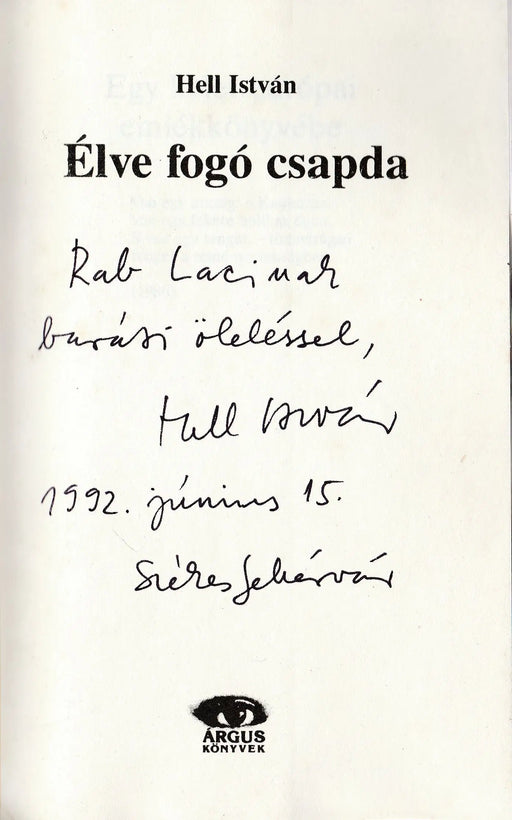 Hell István
Élve fogó csapda
Rab Lacinak
baráti öleléssel,
Hell István
1992. június 15.
Székesfehérvár
ÁRGUS
KÖNYVEK